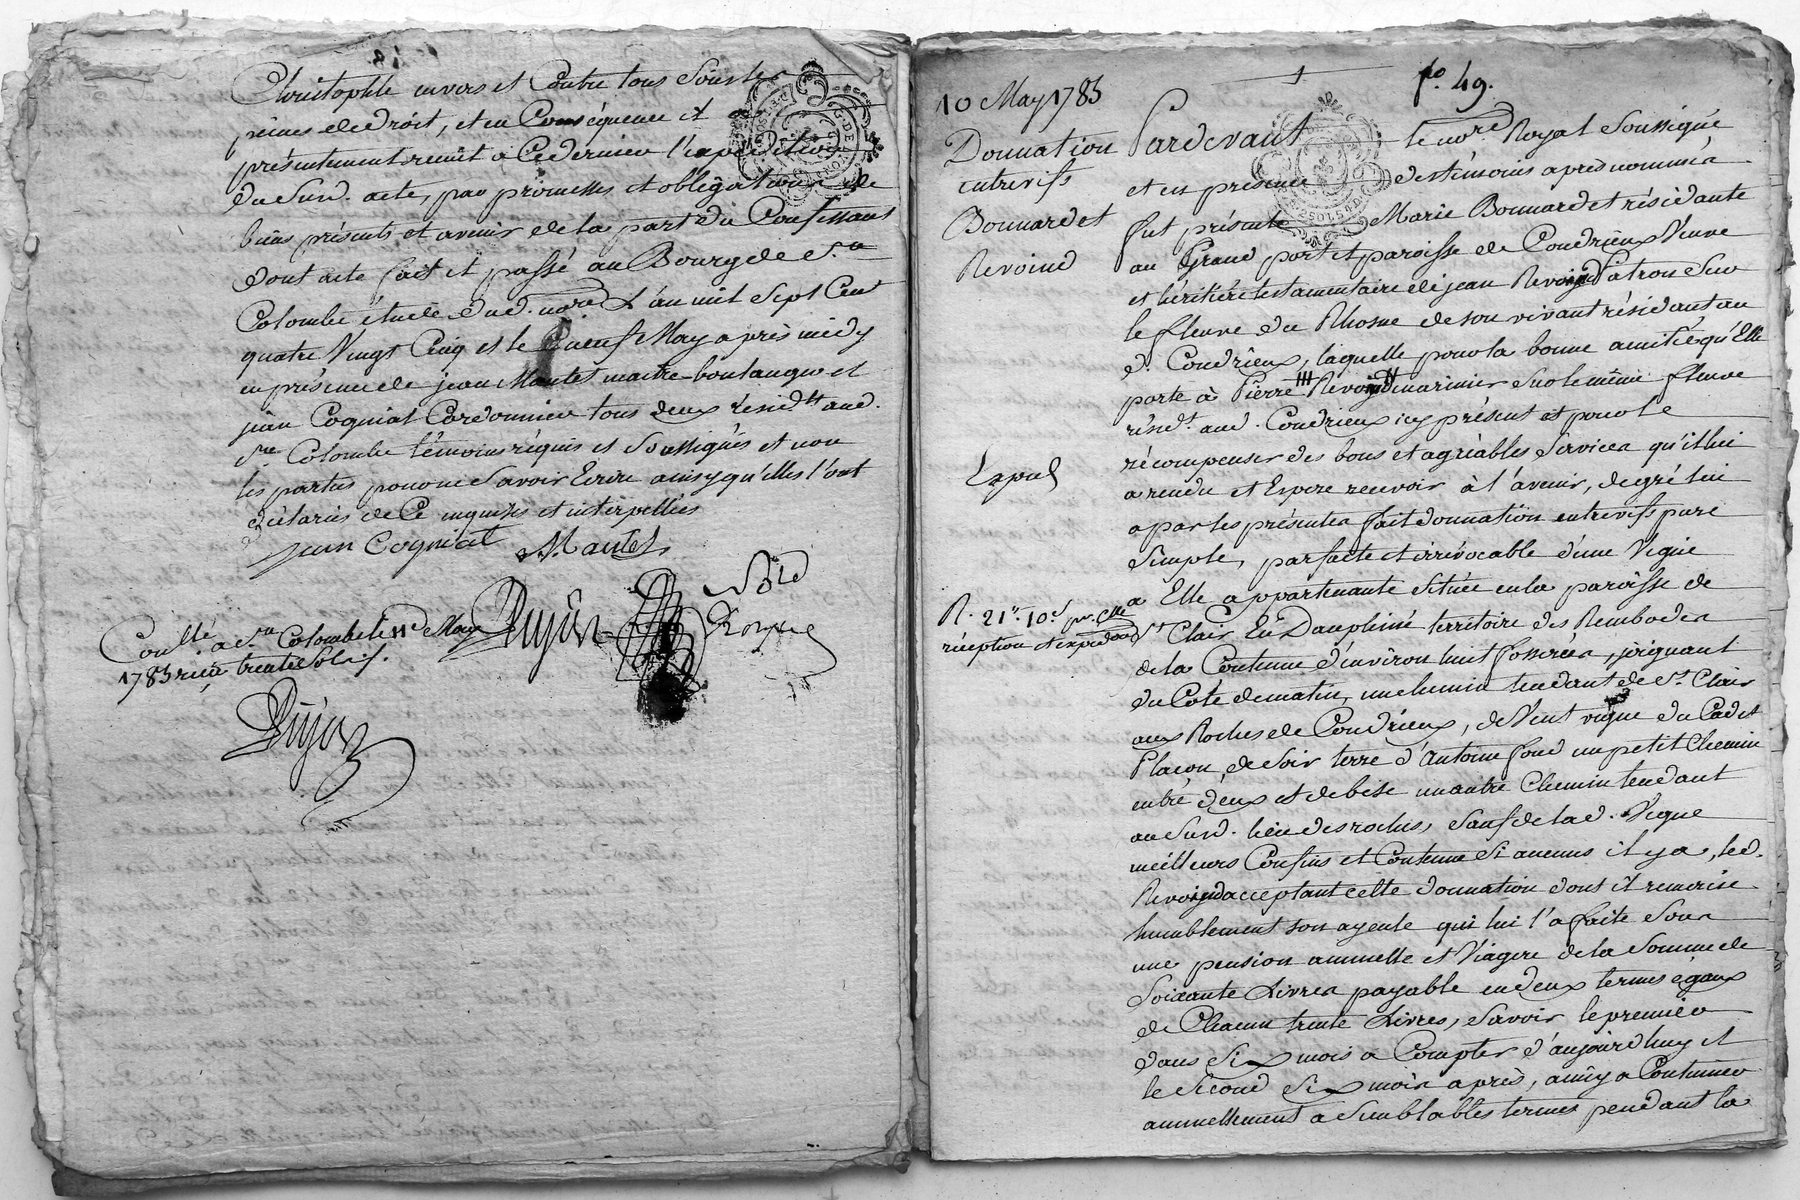 Christophle envers et Contre tous Sous les
peines de droit, et en Conséquence il a
présentement remit a Ce dernier l'expedition
du Susd. acte, par promesses et obligations de
biens présents et avenir de la part du Confessant
dont acte fait et passé au Bourg de Ste
Colombe étude dud. nore L'an mil Sept Cent
quatre Vingt Cinq et le neuf May après midy
en présence de jean Mantel maitre boulanger et
jean Cogniat Cordonnier tous deux résidts aud.
Ste Colombe témoins réquis et Soussignés et non
les parties pour ne Savoir Ecrire ainsy qu'elles l'ont
déclarés de Ce enquises et interpellées
jean Cogniat Mantel
Dujon Nore
Royal
Conllé a Ste Colombe le 11e May
1785 reçu trente Sols.
Dujon
10 May 1785
fo. 49.
Donnation
entrevifs
Bonnardet
Revoind
Exped
R. 21s. 10d. pr. Elle
réception et expedon
Pardevant le nore Royal Soussigné
et en presence des témoins apres nommés
fut présente Marie Bonnardet résidante
au Grand port et paroisse de Condrieux Veuve
et héritiére testamentaire de jean Revoind Patron Sur
le fleuve du Rhosne de son vivant résidant au
d. Condrieux, laquelle pour la bonne amitié qu'Elle
porte à Pierre Revoind marinier Sur le même fleuve
résidt. aud. Condrieux icy présent et pour le
récompenser des bons et agréables Services qu'il lui
a rendu et Espere recevoir à l'avenir, de gré lui
a par les présentes fait donnation entrevifs pure
Simple, parfaite et irrévocable d'une Vigne
a Elle appartenante située en la paroisse de
St Clair En Dauphiné territoire des Rembodes
de la Contenue d'environ huit fosserées, joignant
du Coté de matin, un chemin tendant de St Clair
aux Roches de Condrieux, de Vent vigne du Cadet
Plaçon, de Soir terre d'Antoine fond un petit Chemin
entre deux et de bize un autre Chemin tendant
au Susd. lieu des roches, Sauf de lad. Vigne
meilleurs Confins et Contenue Si aucuns il y a, led.
Revoind acceptant cette donnation dont il remercie
humblement son ayeule qui lui l'a faite Sous
une pension annuelle et Viagere de la Somme de
Soixante Livres payable en deux termes égaux
de Chacun trente Livres, Savoir le premier
dans Six mois a Compter d'aujourdhuy et
le Second Six mois après, ainsy a Continuer
annuellement a Semblables termes pendant la